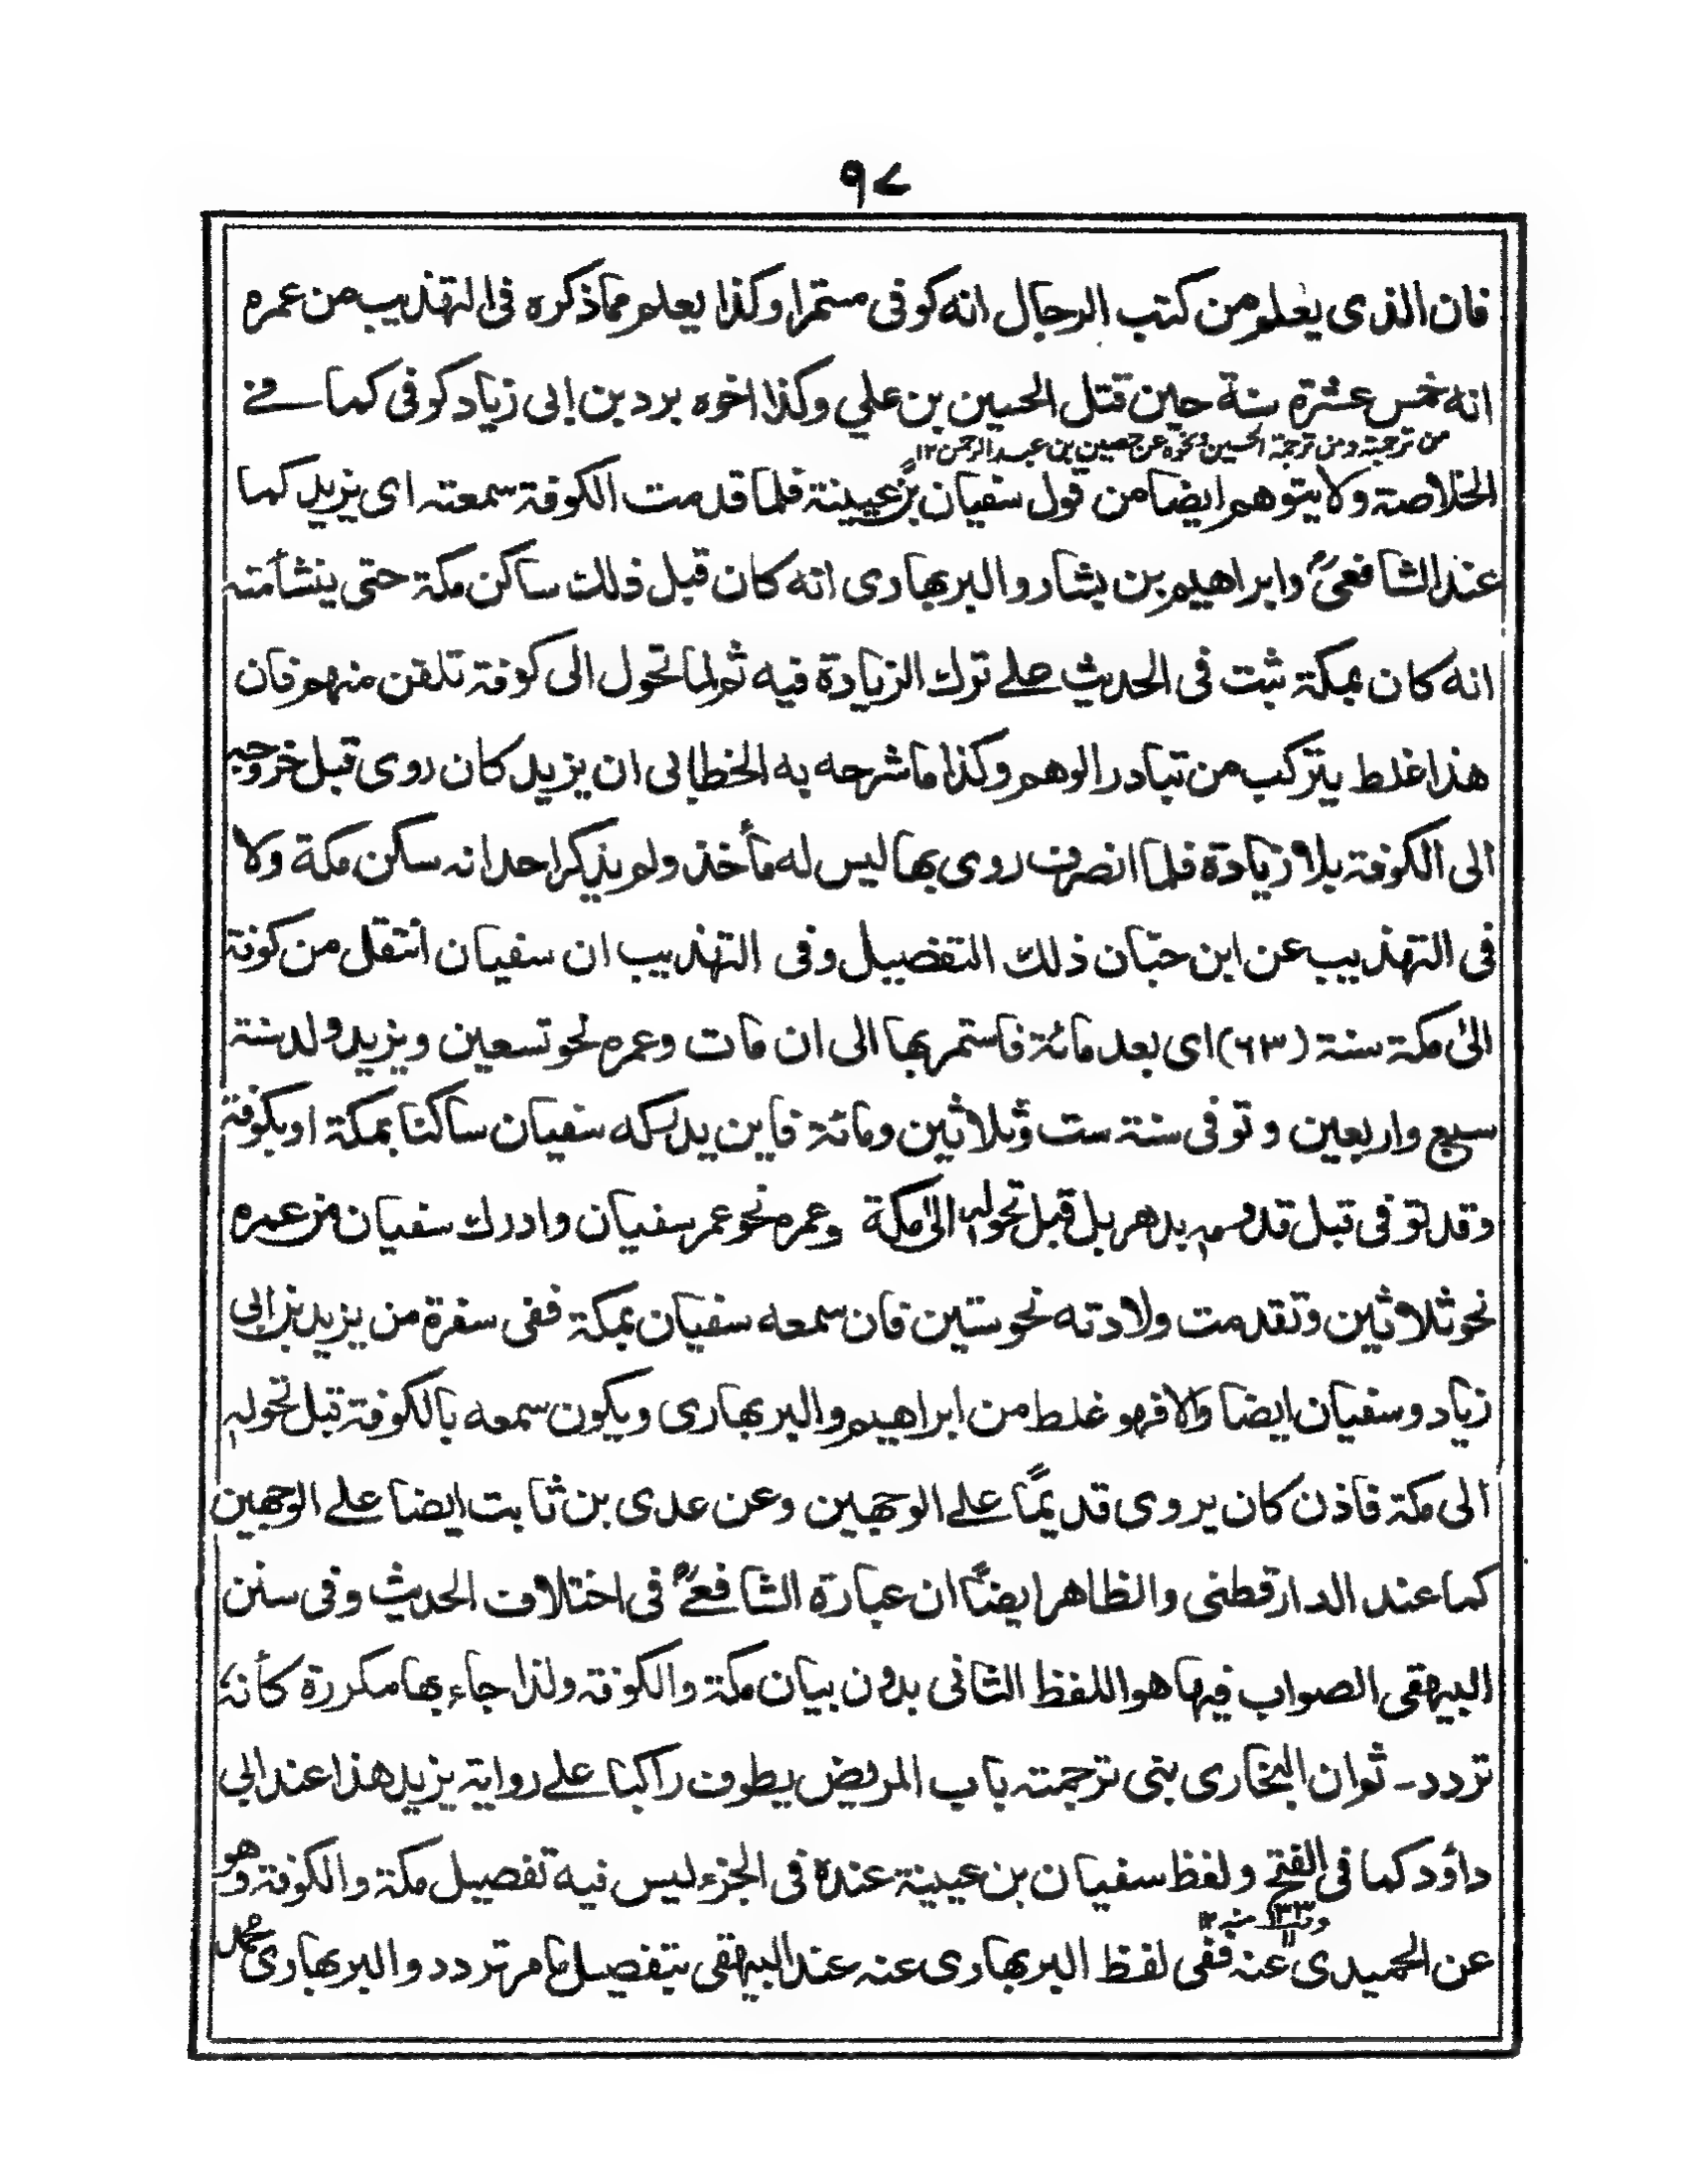 ٩٧
فان الذى يعلم من كتب الرجال انه كوفى مستمرا وكذا يعلم مما ذكره فى التهذيب من عمره
انه خمس عشرة سنة حين قتل الحسين بن علي وكذا اخوه برد بن ابى زياد كوفى كما فے
من ترجمة ومن ترجمة الحسين ونحوه عن حصين بن عبد الرحمن ١٢
الخلاصة ولا يتوهم ايضا من قول سفيان بن عيينة فلما قدمت الكوفة سمعته اى يزيد كما
عند الشافعىؒ وابراهيم بن بشار والبربهارى انه كان قبل ذلك ساكن مكة حتى ينشأ منه
انه كان بمكة ثبت فى الحديث علے ترك الزيادة فيه ثم لما تحول الى كوفة تلقن منهم فان
هذا غلط يتركب من تبادر الوهم وكذا ما شرحه به الخطابى ان يزيد كان روى قبل خروجه
الى الكوفة بلا زيادة فلما انصرف روى بها ليس له مأخذ ولم يذكر احد انه ساكن مكة ولا
فى التهذيب عن ابن حبّان ذلك التفصيل وفى التهذيب ان سفيان انتقل من كوفة
الىٰ مكة سنة (٦٣) اى بعد مائة فاستمر بها الى ان مات وعمره نحو تسعين ويزيد ولد سنة
سبع واربعين وتوفى سنة ست وثلاثين ومائة فاين يدركه سفيان ساكنا بمكة او بكوفة
وقد توفى قبل قدومه بدهر بل قبل تحوله الىٰ مكة وعمره نحو عمر سفيان وادرك سفيان من عمره
نحو ثلاثين وتقدمت ولادته نحو ستين فان سمعه سفيان بمكة ففى سفرة من يزيد بن ابى
زياد وسفيان ايضا والا فهو غلط من ابراهيم والبربهارى ويكون سمعه بالكوفة قبل تحوله
الى مكة فاذن كان يروى قديمًا علے الوجهين وعن عدى بن ثابت ايضا علے الوجهين
كما عند الدارقطنى والظاهر ايضًا ان عبارة الشافعےؒ فى اختلاف الحديث وفى سنن
البيهقى الصواب فيها هو اللفظ الثانى بدون بيان مكة والكوفة ولذا جاء بها مكررة كأنه
تردد۔ ثم ان البخارى بنى ترجمته باب المريض يطوف راكبا علے رواية يزيد هذا عند ابى
داؤد كما فى الفتح ولفظ سفيان بن عيينة عنده فى الجزء ليس فيه تفصيل مكة والكوفة وهو
منه ١٢
عن الحميدى عنه ففى لفظ البربهارى عنه عند البيهقى بتفصيل ما مر تردد والبربهارى محمد